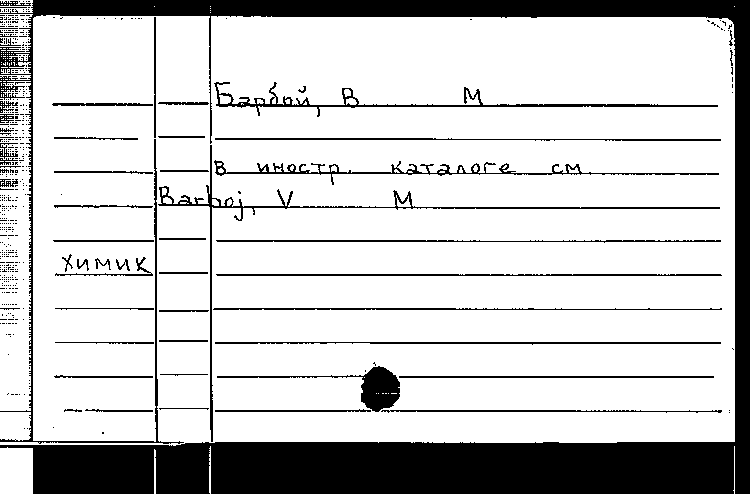 Барбой, В М
в иностр. каталоге см
Barboj, V M
химик